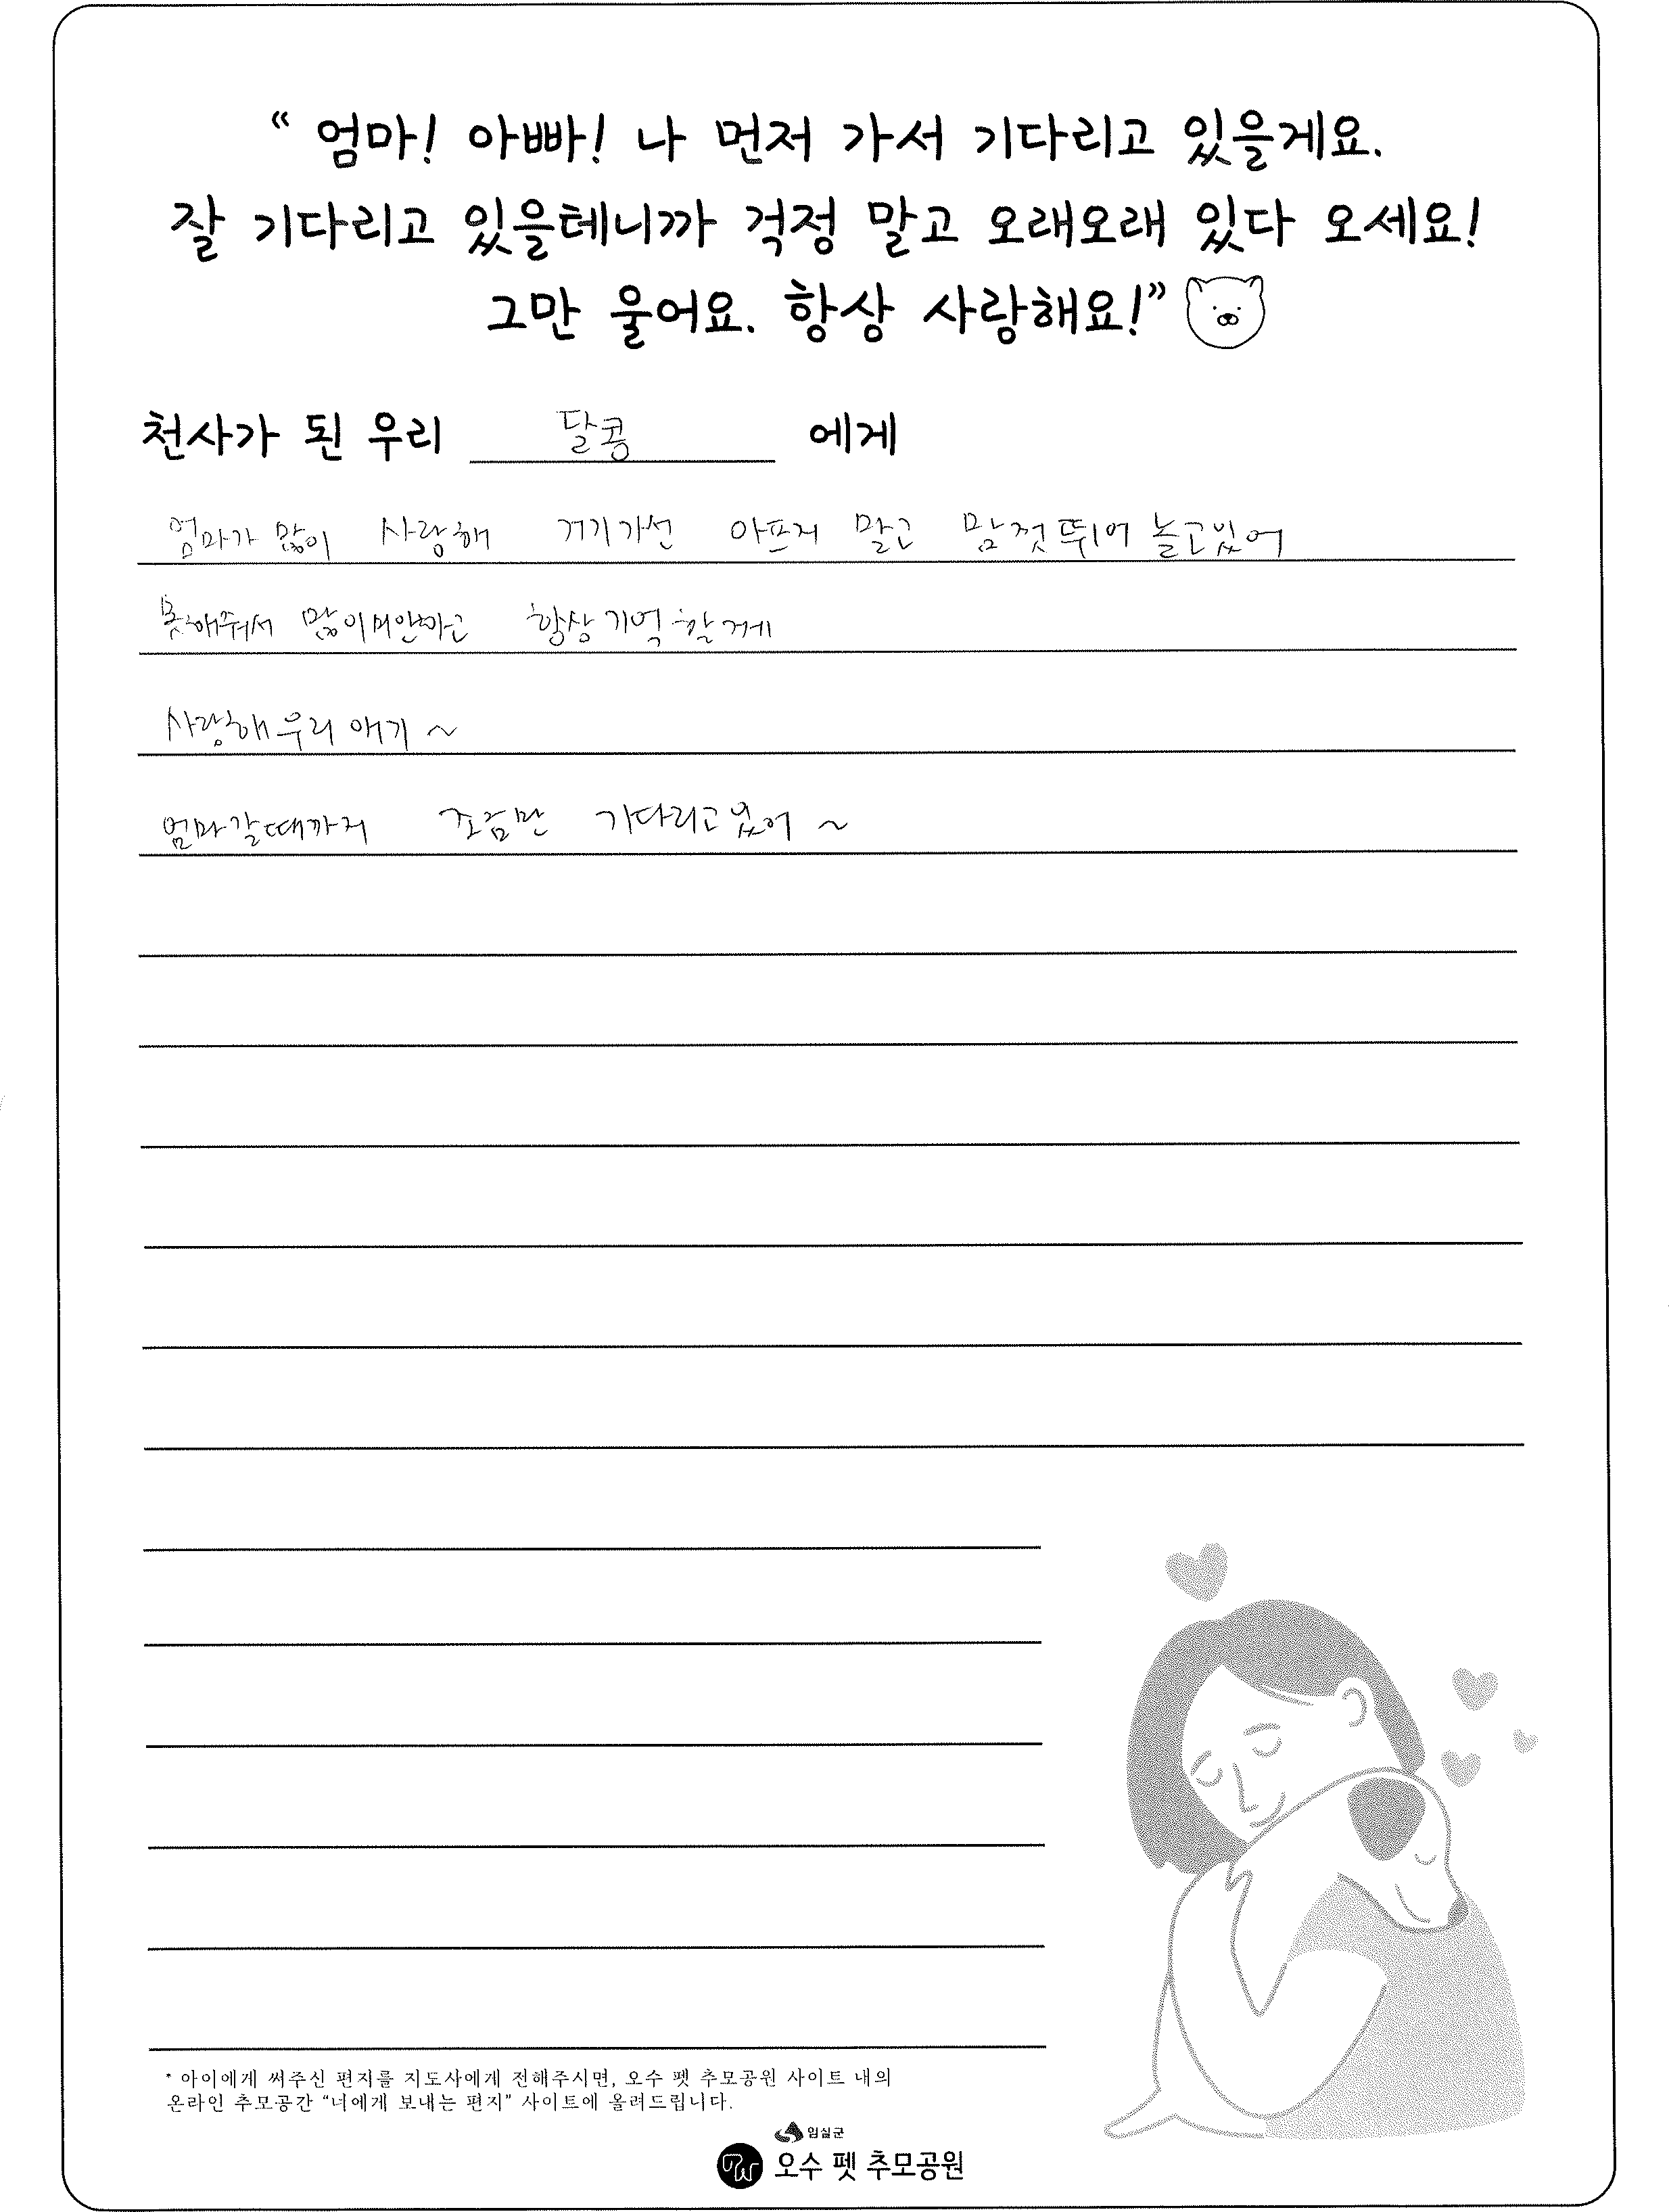 “ 엄마! 아빠! 나 먼저 가서 기다리고 있을게요.
잘 기다리고 있을테니까 걱정 말고 오래오래 있다 오세요!
그만 울어요. 항상 사랑해요!”
천사가 된 우리 달콩 에게
엄마가 많이 사랑해 거기가선 아프지 말고 맘껏 뛰어 놀고있어
못해줘서 많이미안하고 항상기억할게
사랑해우리 애기 ~
엄마갈때까지 조금만 기다리고있어 ~
* 아이에게 써주신 편지를 지도사에게 전해주시면, 오수 펫 추모공원 사이트 내의
온라인 추모공간 “너에게 보내는 편지” 사이트에 올려드립니다.
임실군
오수 펫 추모공원